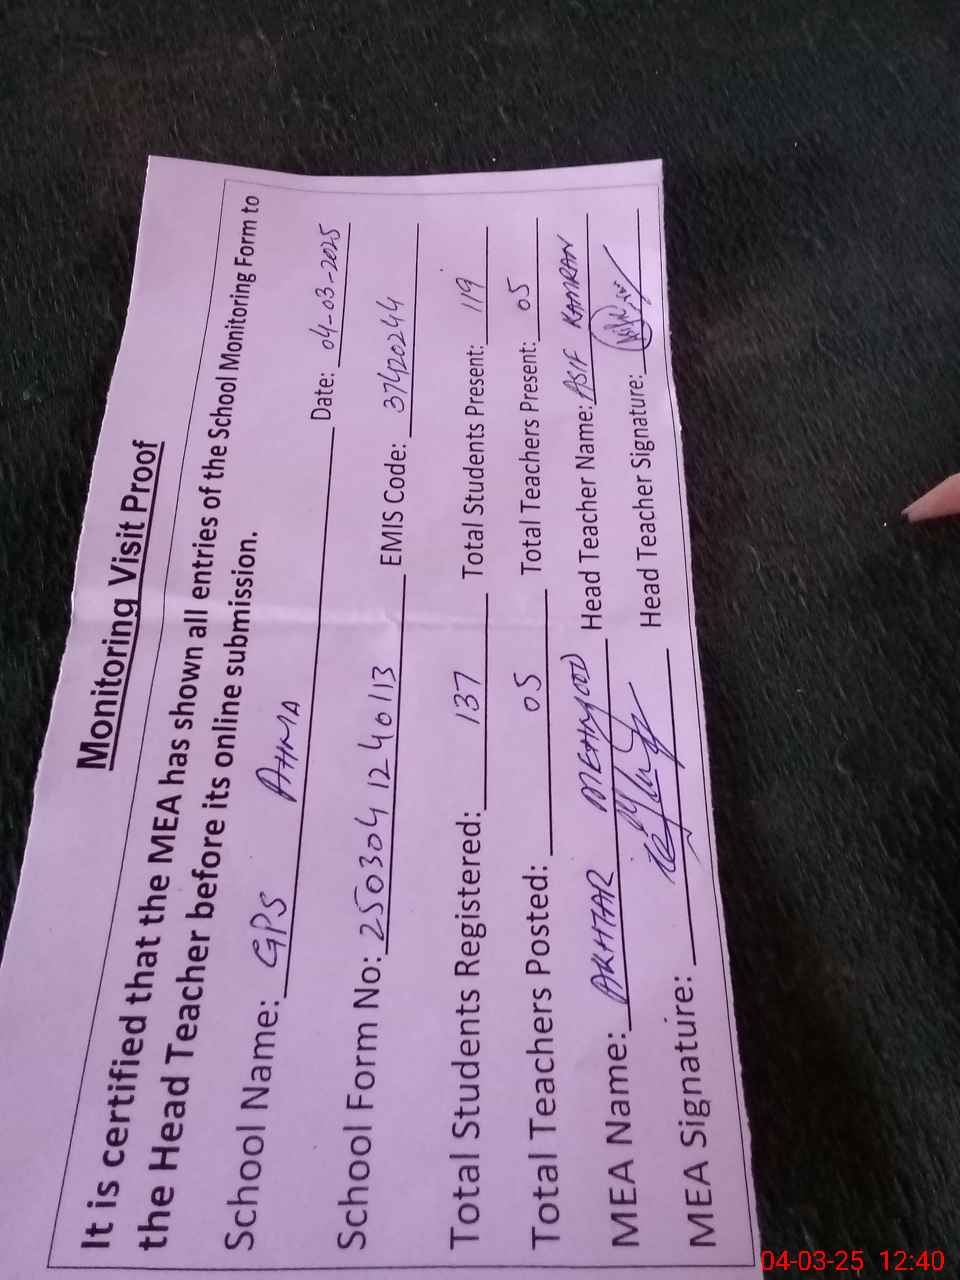 Monitoring Visit Proof
It is certified that the MEA has shown all entries of the School Monitoring Form to
the Head Teacher before its online submission.
School Name: GPS AHMA Date: 04-03-2025
School Form No: 250304 1246113 EMIS Code: 37420244
Total Students Registered: 137 Total Students Present: 119
Total Teachers Posted: 05 Total Teachers Present: 05
MEA Name: AKHTAR MEHMOOD Head Teacher Name: ASIF KAMRAN
MEA Signature: Head Teacher Signature:
04-03-25 12:40